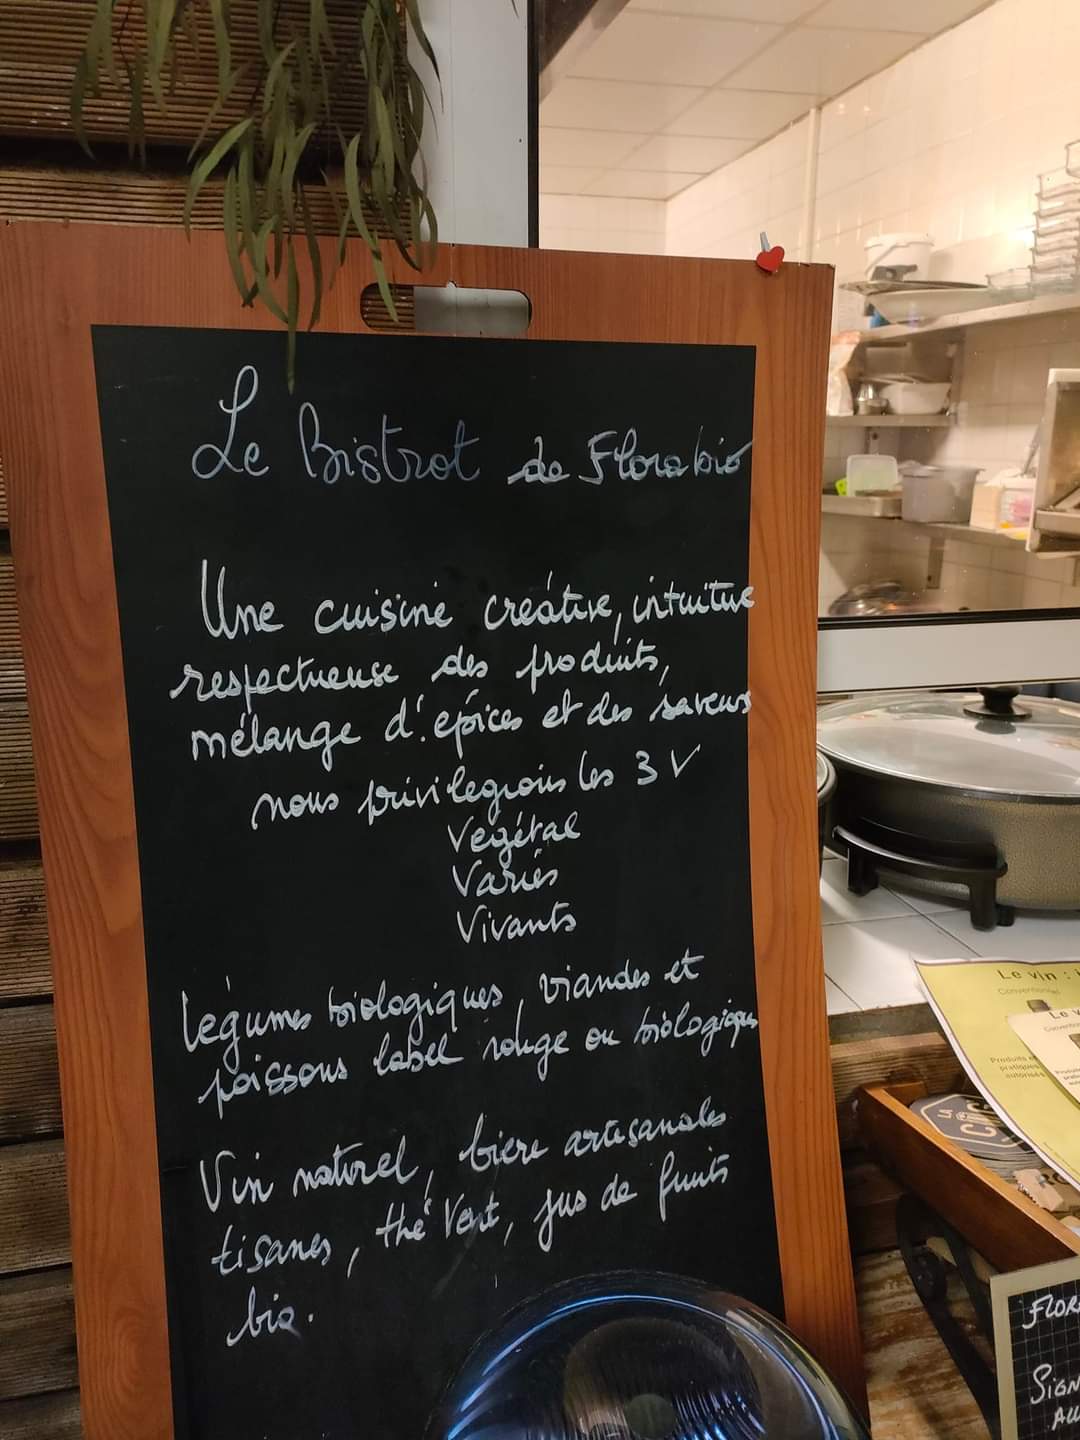 Le Bistrot de Florabio
Une cuisine créative, intuitive
respectueuse des produits,
mélange d'épices et des saveurs
nous privilegions les 3 V
Végétal
Variés
Vivants
légumes biologiques, viandes et
poissons label rouge ou biologiques
Vin naturel, bière artisanales
tisanes, thé vert, jus de fruits
bio.
Le vin :
Conventionnel
Le
Produits
pratiques
autorisés
LA
FLOR
SIGN
AU